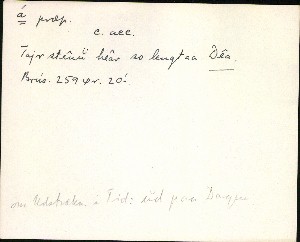 á præp.
c. acc.
Tajr stênü héâr so lengt aa Dêa.
Brús. 259 20
om Udstrækn. i Tid: ud paa Dagen